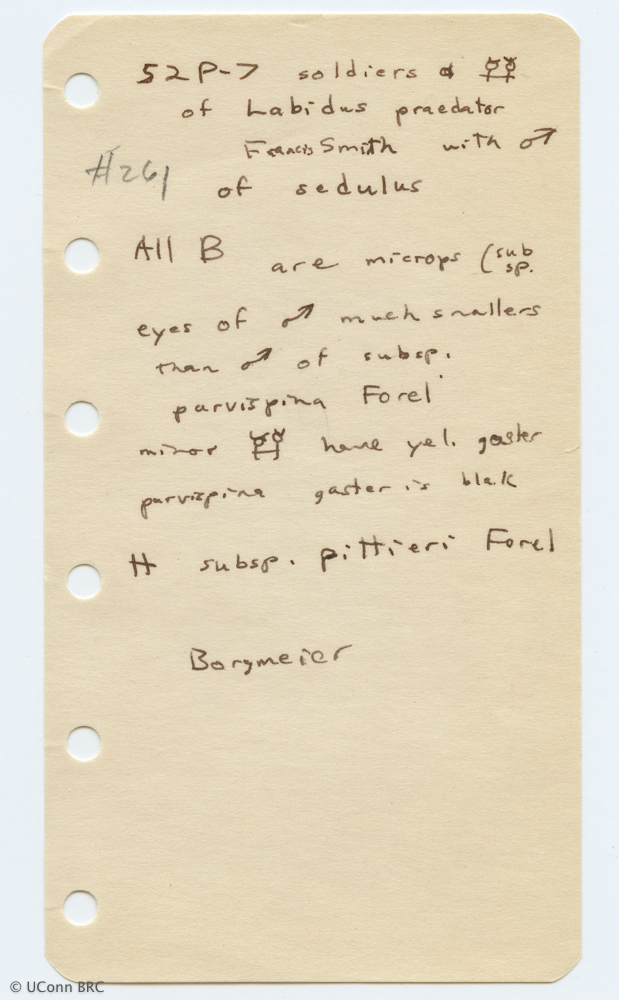 52P-7 soldiers & ☿☿
of Labidus praedator
Francis Smith with ♂
#261
of sedulus
All B are microps (sub sp.
eyes of ♂ much smallers
than ♂ of subsp.
parvispina Forel
minor ☿☿ have yel. gaster
parvispina gaster is blak
H subsp. pittieri Forel
Borgmeier
© UConn BRC